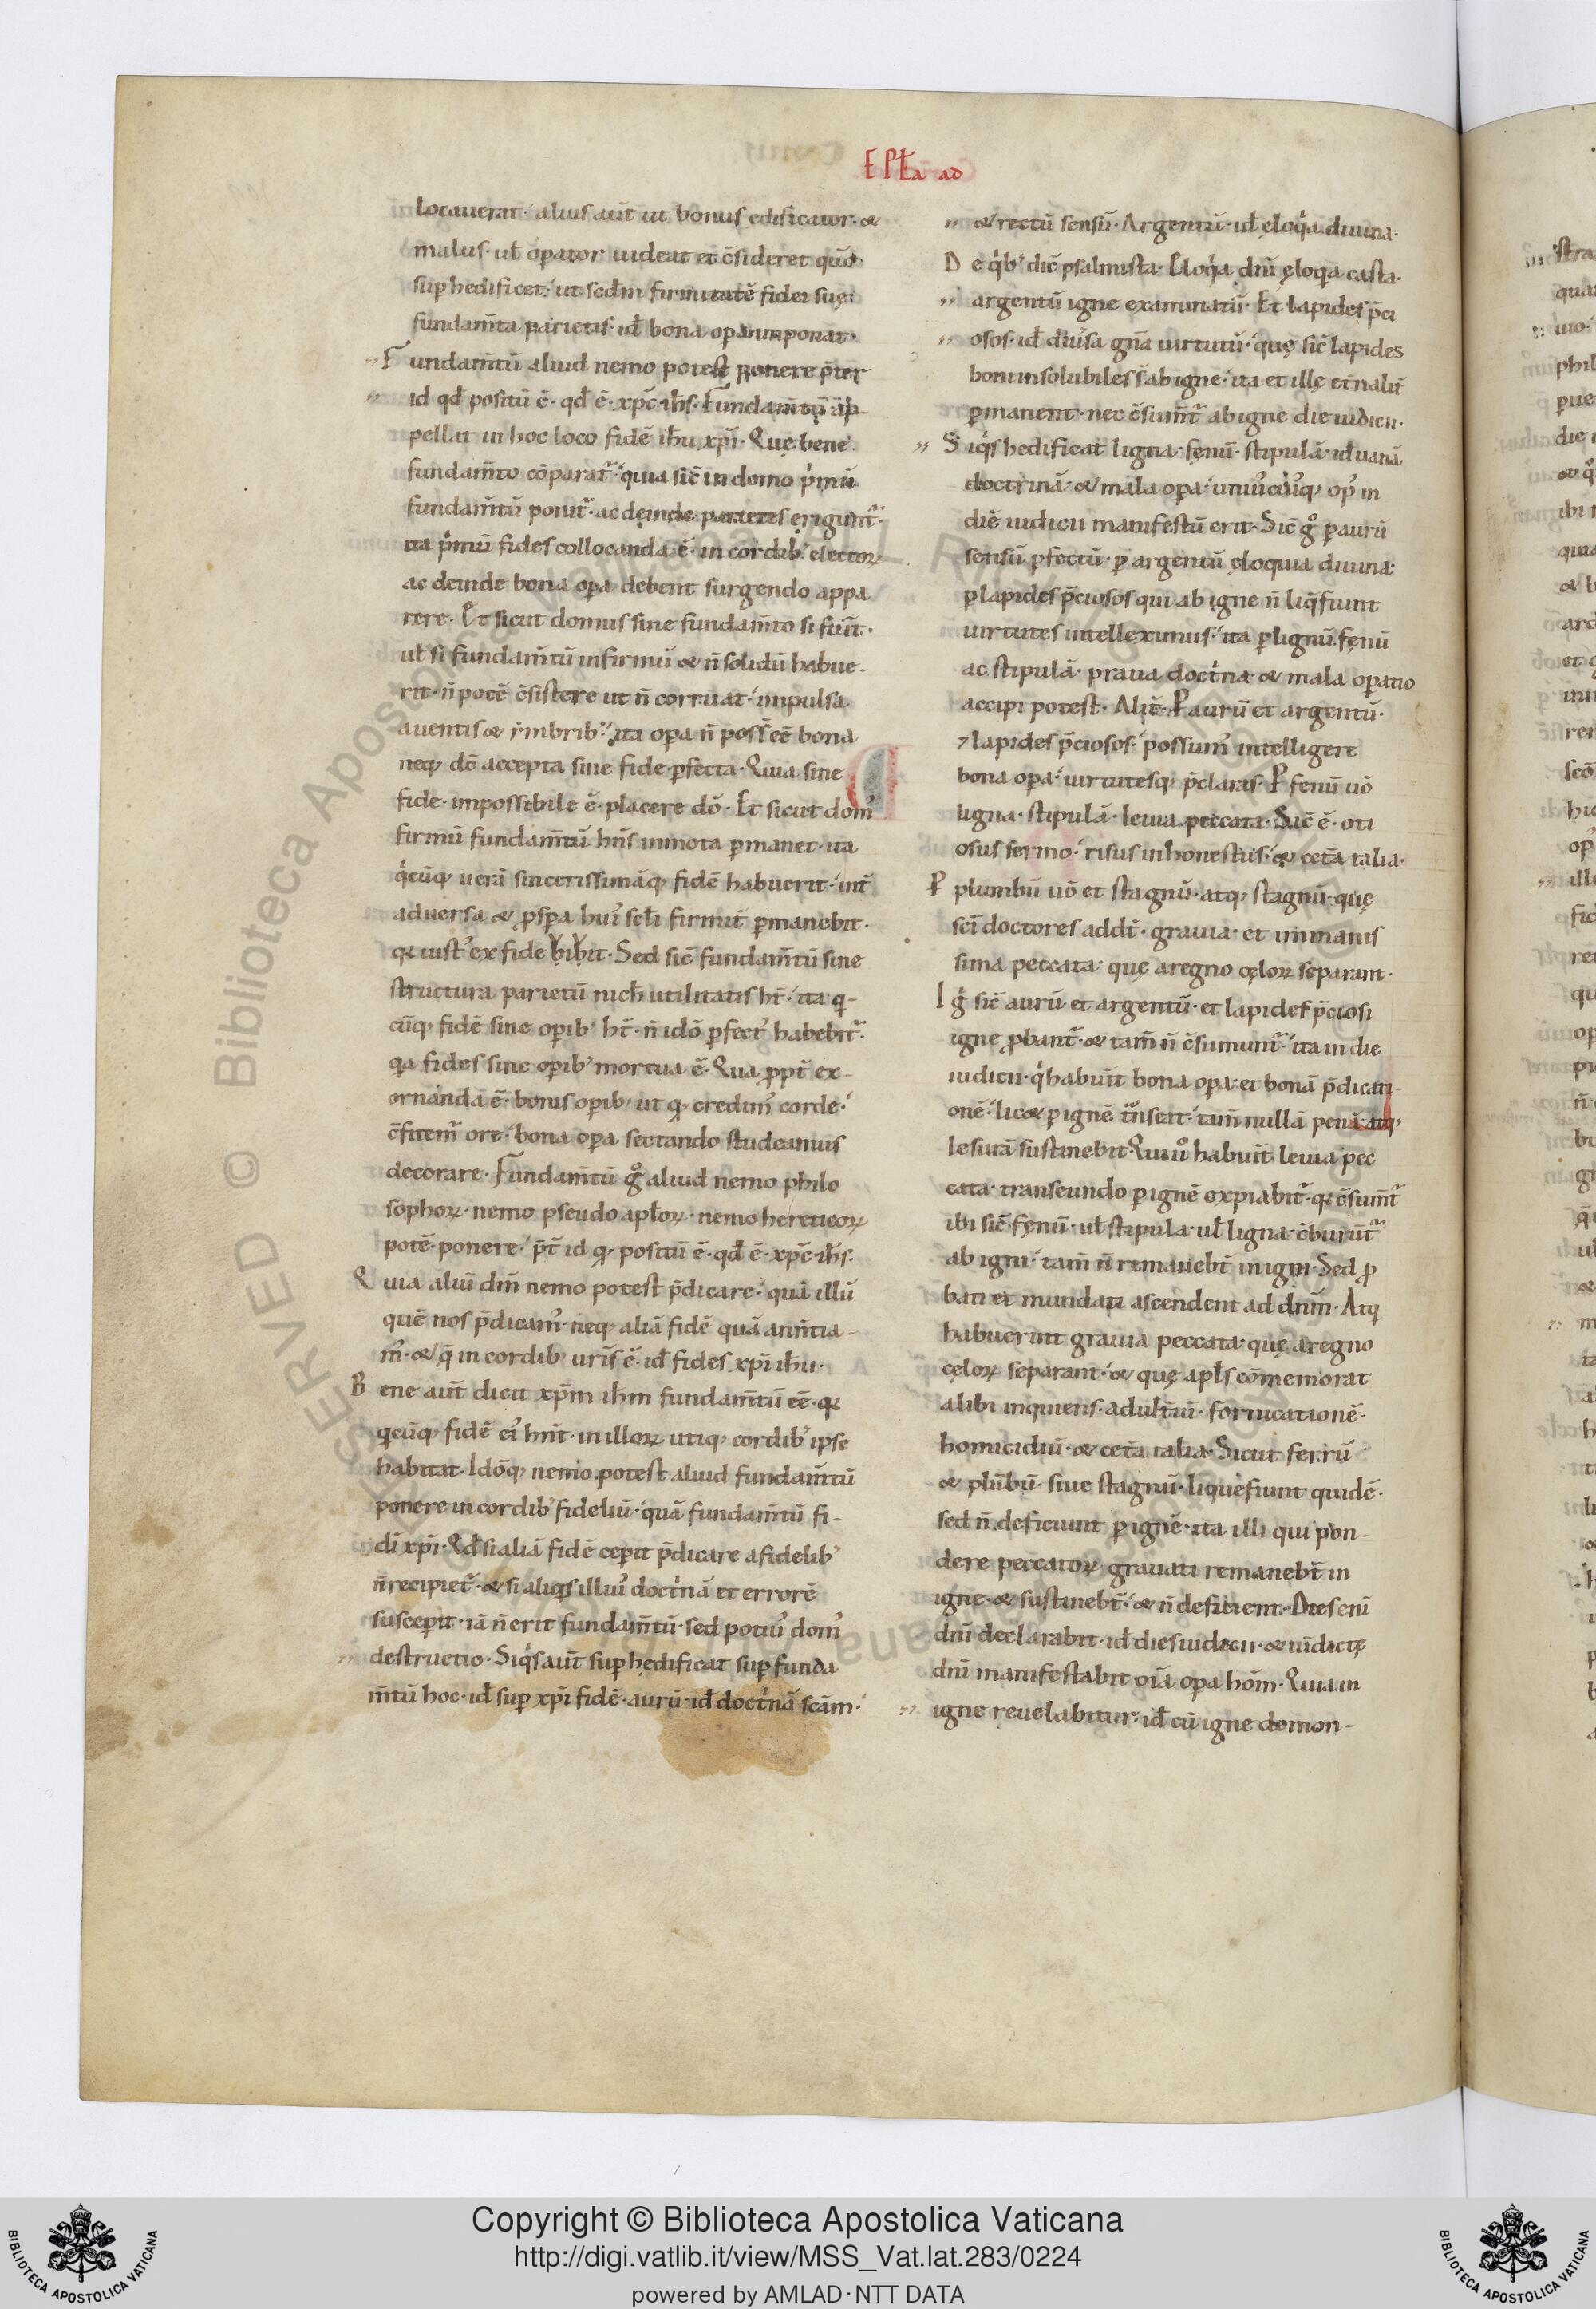 EPŁa ad
locauerat· alius aūt ut bonus edificator· &
malus· ul̄ op̄ator uideat et c̄sideret quō
sup hedificet· ut scdm firmitatē fidei suę
fundam̄ta parietis· id̄ bona op̄a
Fundam̄tū aliud nemo potest ponere p̄ter
id qd̄ positū ē· qd̄ ē· xp̄c ih̄s· Fundam̄tū ap-
pellat in hoc loco fidē ih̄u xp̄i· Quę bene
fundam̄to cōparat᷑· quia sic̄ in domo p'mū
fundam̄tū ponit᷑· ac deinde parietes erigunt᷑·
ita p'mū fides collocanda ē· in cordib' electoꝝ
ac deinde bona op̄a debent surgendo appa
rere· Et sicut domus sine fundam̄to si fūit·
ul̄ si fundam̄tū infirmū & n̄ solidū habue-
rit· n̄ potē c̄sistere ut n̄ corruat· impulsa
auentis & īmbrib'· ita op̄a n̄ possē eē bona
neq; dō accepta sine fide ꝑfecta· Quia sine
fide· impossibile ē· placere dō· Et sicut dom'
firmū fundam̄tū hn̄s inmota ꝑmanet· ita
q'cūq; uerā sincerissimāq; fidē habuerit· int̄
aduersa & ꝓspa hui' scl̄i firmit̄ ꝑmanebit·
qꝛ iust' ex fide bibit· Sed sic̄ fundam̄tū sine
structura parietū nich̄ utilitatis ht̄· ita q-
cūq; fidē sine opib' ht̄· n̄ idō ꝑfect' habebit᷑·
qa fides sine opib' mortua ē· Qua ꝓpt̄ ex-
ornanda ē· bonis opib' ut q, credim' corde·
c̄fitem᷑ ore· bona op̄a sectando studeamus
decorare· Fundam̄tū g° aliud nemo philo
sophoꝝ· nemo pseudo apl̄oꝝ· nemo hereticoꝝ
potē ponere· p̄t̄ id q, positū ē· qd̄ ē· xp̄c ih̄s·
Quia aliū dm̄ nemo potest p̄dicare· quā illū
quē nos p̄dicam'· neq; aliā fidē quā ann̄tia-
m'· & q̄ in cordib' ur̄is ē· id̄ fides xp̄i ih̄u·
Bene aūt dicit xp̄m ih̄m fundam̄tū eē· qꝛ
q̄cūq; fidē ei' hn̄t· in illoꝝ utiq; cordib' ipse
habitat· Idōq; nemo potest aliud fundam̄tū
ponere in cordib' fideliū· quā fundam̄tū fi-
dī xp̄i· Qd̄ si aliā fidē cep̄it p̄dicare a fidelib'
n̄ recipiet᷑· & si aliq's illiu' doct'nā et errorē
suscep̄it· iā n̄ erit fundam̄tū· sed potiu' dom'
destructio· Siq's aūt sup hedificat sup funda
m̄tū hoc· id̄ sup xp̄i fidē· aurū· id̄ doct'nā scām·
& rectū sensū· Argentū· id̄ ęloq'a diuina·
De q'b' dic̄ psalmista· Eloq'a dn̄i ęloqa casta·
argentū igne examinatū· Et lapides p̄ci
osos· id̄ diūsa gn̄a uirtutū· quę sic̄ lapides
boni insolubiles s̄ ab igne· ita et illę
ꝑmanent· nec c̄sum̄t᷑ ab igne die iudicii·
Siq's hedificat ligna· fęnū· stipulā· id̄ uanā
doctrinā· & mala op̄a· uniu'cui'q; op' in
diē iudicii manifestū erit· Sic̄ g° ꝑ aurū
sensū ꝑfectū· ꝑ argentū ęloquia diuina·
ꝑ lapides p̄ciosos qui ab igne n̄ liq̄fiunt
uirtutes intelleximus· ita ꝑ lignū· fęnū
ac stipulā· praua doct'na & mala op̄atio
accipi potest· Alit̄· P aurū et argentū·
⁊ lapides p̄ciosos· possum' intelligere
bona op̄a· uirtutesq; p̄claras· P fenū uō
ligna· stipulā· leuia peccata· Sic̄ ē· oti
osus sermo· risus inhonestus· & cet̄a talia·
P plumbū uō et stagnū· atq; stagnū· quę
sc̄i doctores addt̄· grauia· et inmanis
sima peccata· quę a regno cęloꝝ separant·
Ig' sic̄ aurū et argentū· et lapides p̄ciosi
igne ꝓbant᷑· & tam̄ n̄ c̄sumunt᷑· ita in die
iudicii· q' habuīt bona op̄a· et bonā p̄dicati-
onē· lic& ꝑ ignē t̄nseīt· tam̄ nullā penā· atq;
lesurā sustinebīt· Qui u° habuīt leuia pec
cata· transeundo ꝑ ignē expiabīt᷑· qꝛ c̄sum̄t᷑
ibi sic̄ fęnū· ul̄ stipula· ul̄ ligna· c̄burūt᷑
ab igni· tam̄ n̄ remanebt̄ in igni· Sed ꝓ
bati et mundati ascendent ad dn̄m· Atq
habuerint grauia peccata· quę a regno
cęloꝝ separant· & quę apl̄s cōmemorat
alibi inquiens· adult̄iū· fornicationē·
homicidiū· & cet̄a talia· Sicut ferrū
& plūbū· siue stagnū· liquefiunt quidē·
sed n̄ deficiunt ꝑ ignē· ita illi qui pon-
dere peccatoꝝ grauati remanebt̄ in
igne· & sustinebt̄· & n̄ deficient· Dies eni
dn̄i declarabit· id̄ dies iudicii· & uīdictę
dn̄i manifestabit oīa op̄a hom̄· Quia in
igne reuelabitur· id̄ cū igne demon-
Copyright © Biblioteca Apostolica Vaticana
http://digi.vatlib.it/view/MSS_Vat.lat.283/0224
powered by AMLAD·NTT DATA
BIBLIOTECA APOSTOLICA VATICANA
BIBLIOTECA APOSTOLICA VATICANA